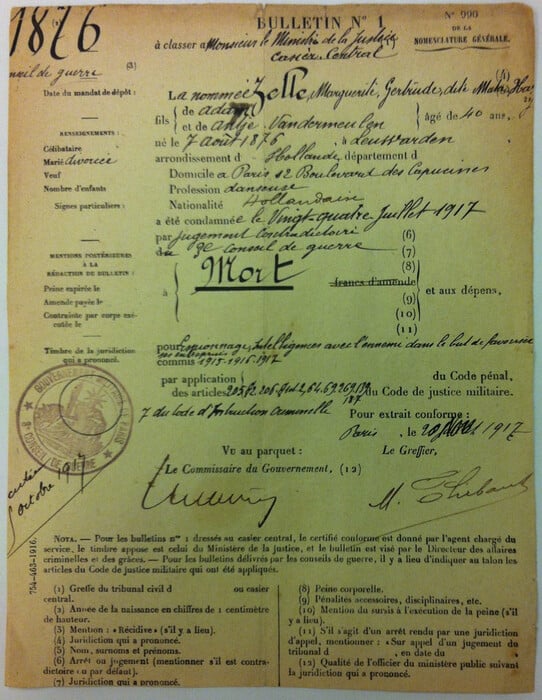 1876
BULLETIN Nº 1
Nº 990
DE LA
NOMENCLATURE GÉNÉRALE.
à classer à Monsieur le Ministre de la Justice
Casier Central
conseil de guerre
(3)
(4)
Date du mandat de dépôt :
La nommée Zelle, Marguerite, Gertrude, dite Mata Hari
fils { de Adam
et de Antje Vandermeulen } âgé de 40 ans,
RENSEIGNEMENTS :
né le 7 Août 1876 à Leuwarden
Célibataire
arrondissement d Hollande, département d
Marié divorcée
Veuf
Domicile à Paris 12 Boulevard des Capucines
Nombre d'enfants
Profession danseuse
Signes particuliers :
Nationalité Hollandaise
a été condamnée le Vingt-quatre Juillet 1917
par jugement contradictoire (6)
du 3e Conseil de guerre (7)
MENTIONS POSTÉRIEURES
A LA
RÉDACTION DU BULLETIN :
à { Mort
(8)
francs d'amende
(9)
(10)
(11)
} et aux dépens,
Peine expirée le
Amende payée le
Contrainte par corps exé-
cutée le
Timbre de la juridiction
qui a prononcé.
pour Espionnage, Intelligences avec l'ennemi dans le but de favoriser
ses entreprises
commis 1915-1916-1917
par application { du Code pénal,
des articles 205 §2, 206 §1 et 2, 64, 69, 269, 189
187
du Code de justice militaire.
7 du Code d'Instruction Criminelle
Pour extrait conforme :
Paris, le 20 1917
GOUVERNEMENT MILITAIRE DE PARIS
3e CONSEIL DE GUERRE
Vu au parquet :
Le Greffier,
Le Commissaire du Gouvernement, (12)
octobre 1917
M. Thibaut
754-463-1916.
NOTA. — Pour les bulletins nº 1 dressés au casier central, le certifié conforme est donné par l'agent chargé du
service, le timbre apposé est celui du Ministère de la Justice, et le bulletin est visé par le Directeur des affaires
criminelles et des grâces. — Pour les bulletins délivrés par les conseils de guerre, il y a lieu d'indiquer au talon les
articles du Code de justice militaire qui ont été appliqués.
(1) Greffe du tribunal civil d ou casier
central.
(2) Année de la naissance en chiffres de 1 centimètre
de hauteur.
(3) Mention : « Récidive » (s'il y a lieu).
(4) Juridiction qui a prononcé.
(5) Nom, surnoms et prénoms.
(6) Arrêt ou jugement (mentionner s'il est contra-
dictoire ou par défaut).
(7) Juridiction qui a prononcé.
(8) Peine corporelle.
(9) Pénalités accessoires, disciplinaires, etc.
(10) Mention du sursis à l'exécution de la peine (s'il
y a lieu).
(11) S'il s'agit d'un arrêt rendu par une juridiction
d'appel, mentionner : « Sur appel d'un jugement du
tribunal d , en date du
(12) Qualité de l'officier du ministère public suivant
la juridiction qui a prononcé.